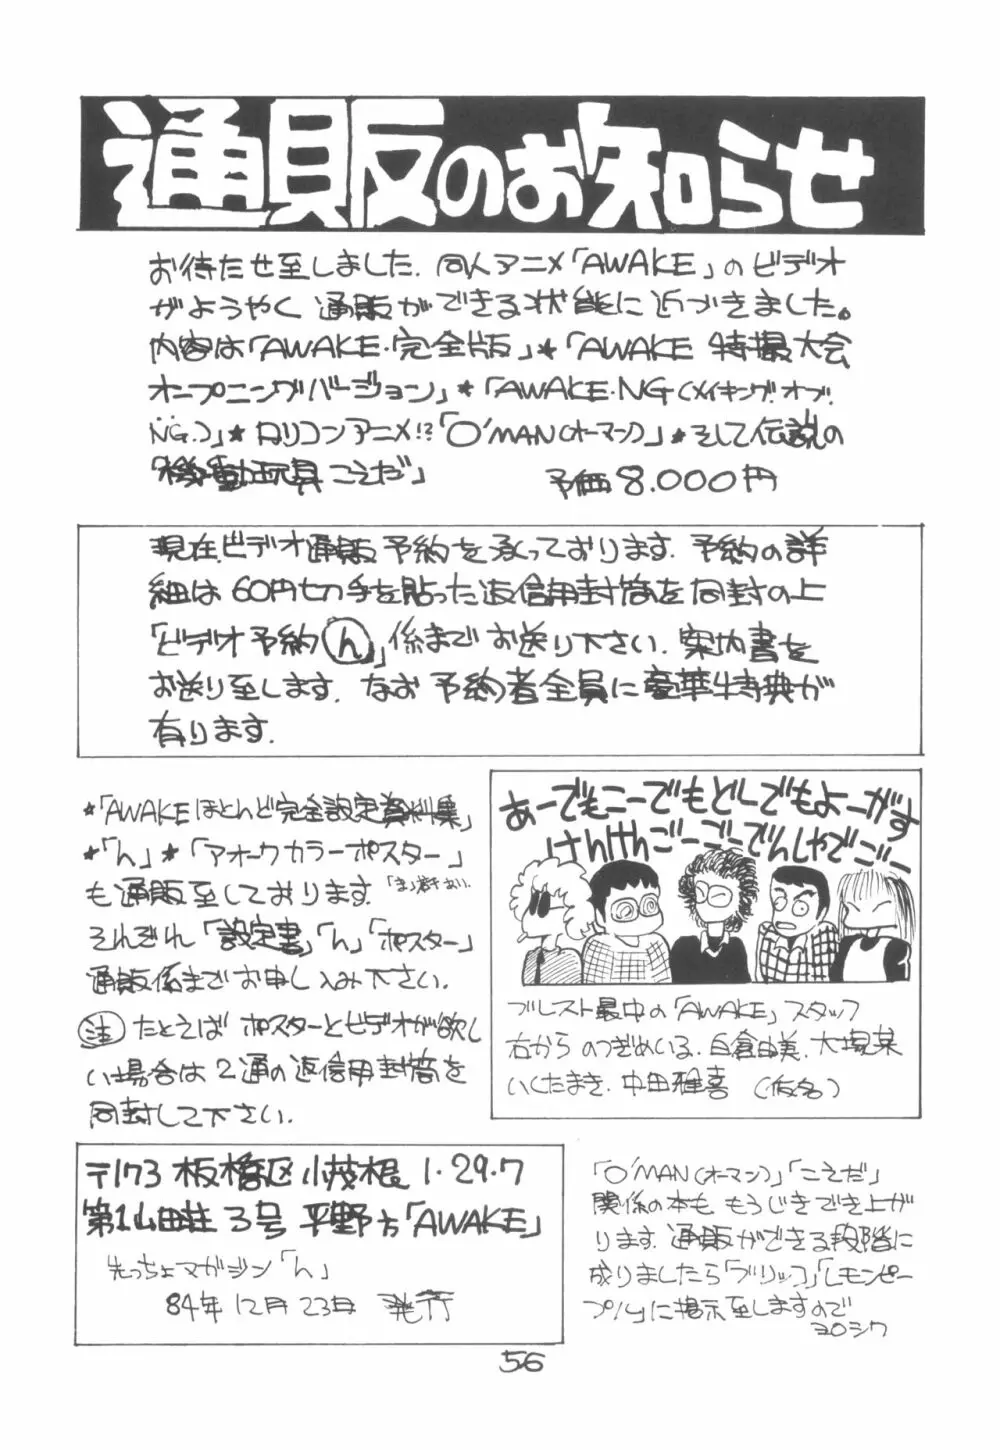 通販のお知らせ
お待たせ至しました. 同人アニメ「AWAKE」のビデオ
がようやく 通販ができる状態に近づきました。
内容は「AWAKE・完全版」*「AWAKE 特撮大会
オープニングバージョン」*「AWAKE・NG(メイキング.オブ.
NG.)」* ロリコンアニメ!?「O'MAN(オーマン)」* そして伝説の
「機動玩具こえだ」 予価8.000円
現在ビデオ通販予約を承っております. 予約の詳
細は60円切手を貼った返信用封筒を同封の上
「ビデオ予約ん」係まで お送り下さい. 案内書を
お送り至します. なお 予約者全員に豪華特典が
有ります.
*「AWAKEほとんど完全設定資料集」
*「ん」*「アオークカラーポスター」
も通販至しております.
それぞれ「設定書」「ん」「ポスター」
通販係までお申し込み下さい.
注 たとえば ポスターとビデオが欲し
い場合は 2通の返信用封筒を
同封して下さい.
あーでもこーでもどーでもよーがす
けんけんごーごーでんしゃでごー
ブレスト最中の「AWAKE」スタッフ
右から のつぎめいる. 白倉由美. 大場某
いくたまき. 中田雅喜 (仮名)
〒173 板橋区小茂根 1・29・7
第1山田荘 3号 平野方「AWAKE」
先っちょマガジン「ん」
84年12月23日 発行
「O'MAN(オーマン)」「こえだ」
関係の本も もうじきでき上が
ります. 通販ができる段階に
成りましたら「ブリッコ」「レモンピー
プル」に掲示至しますので
ヨロシク
56